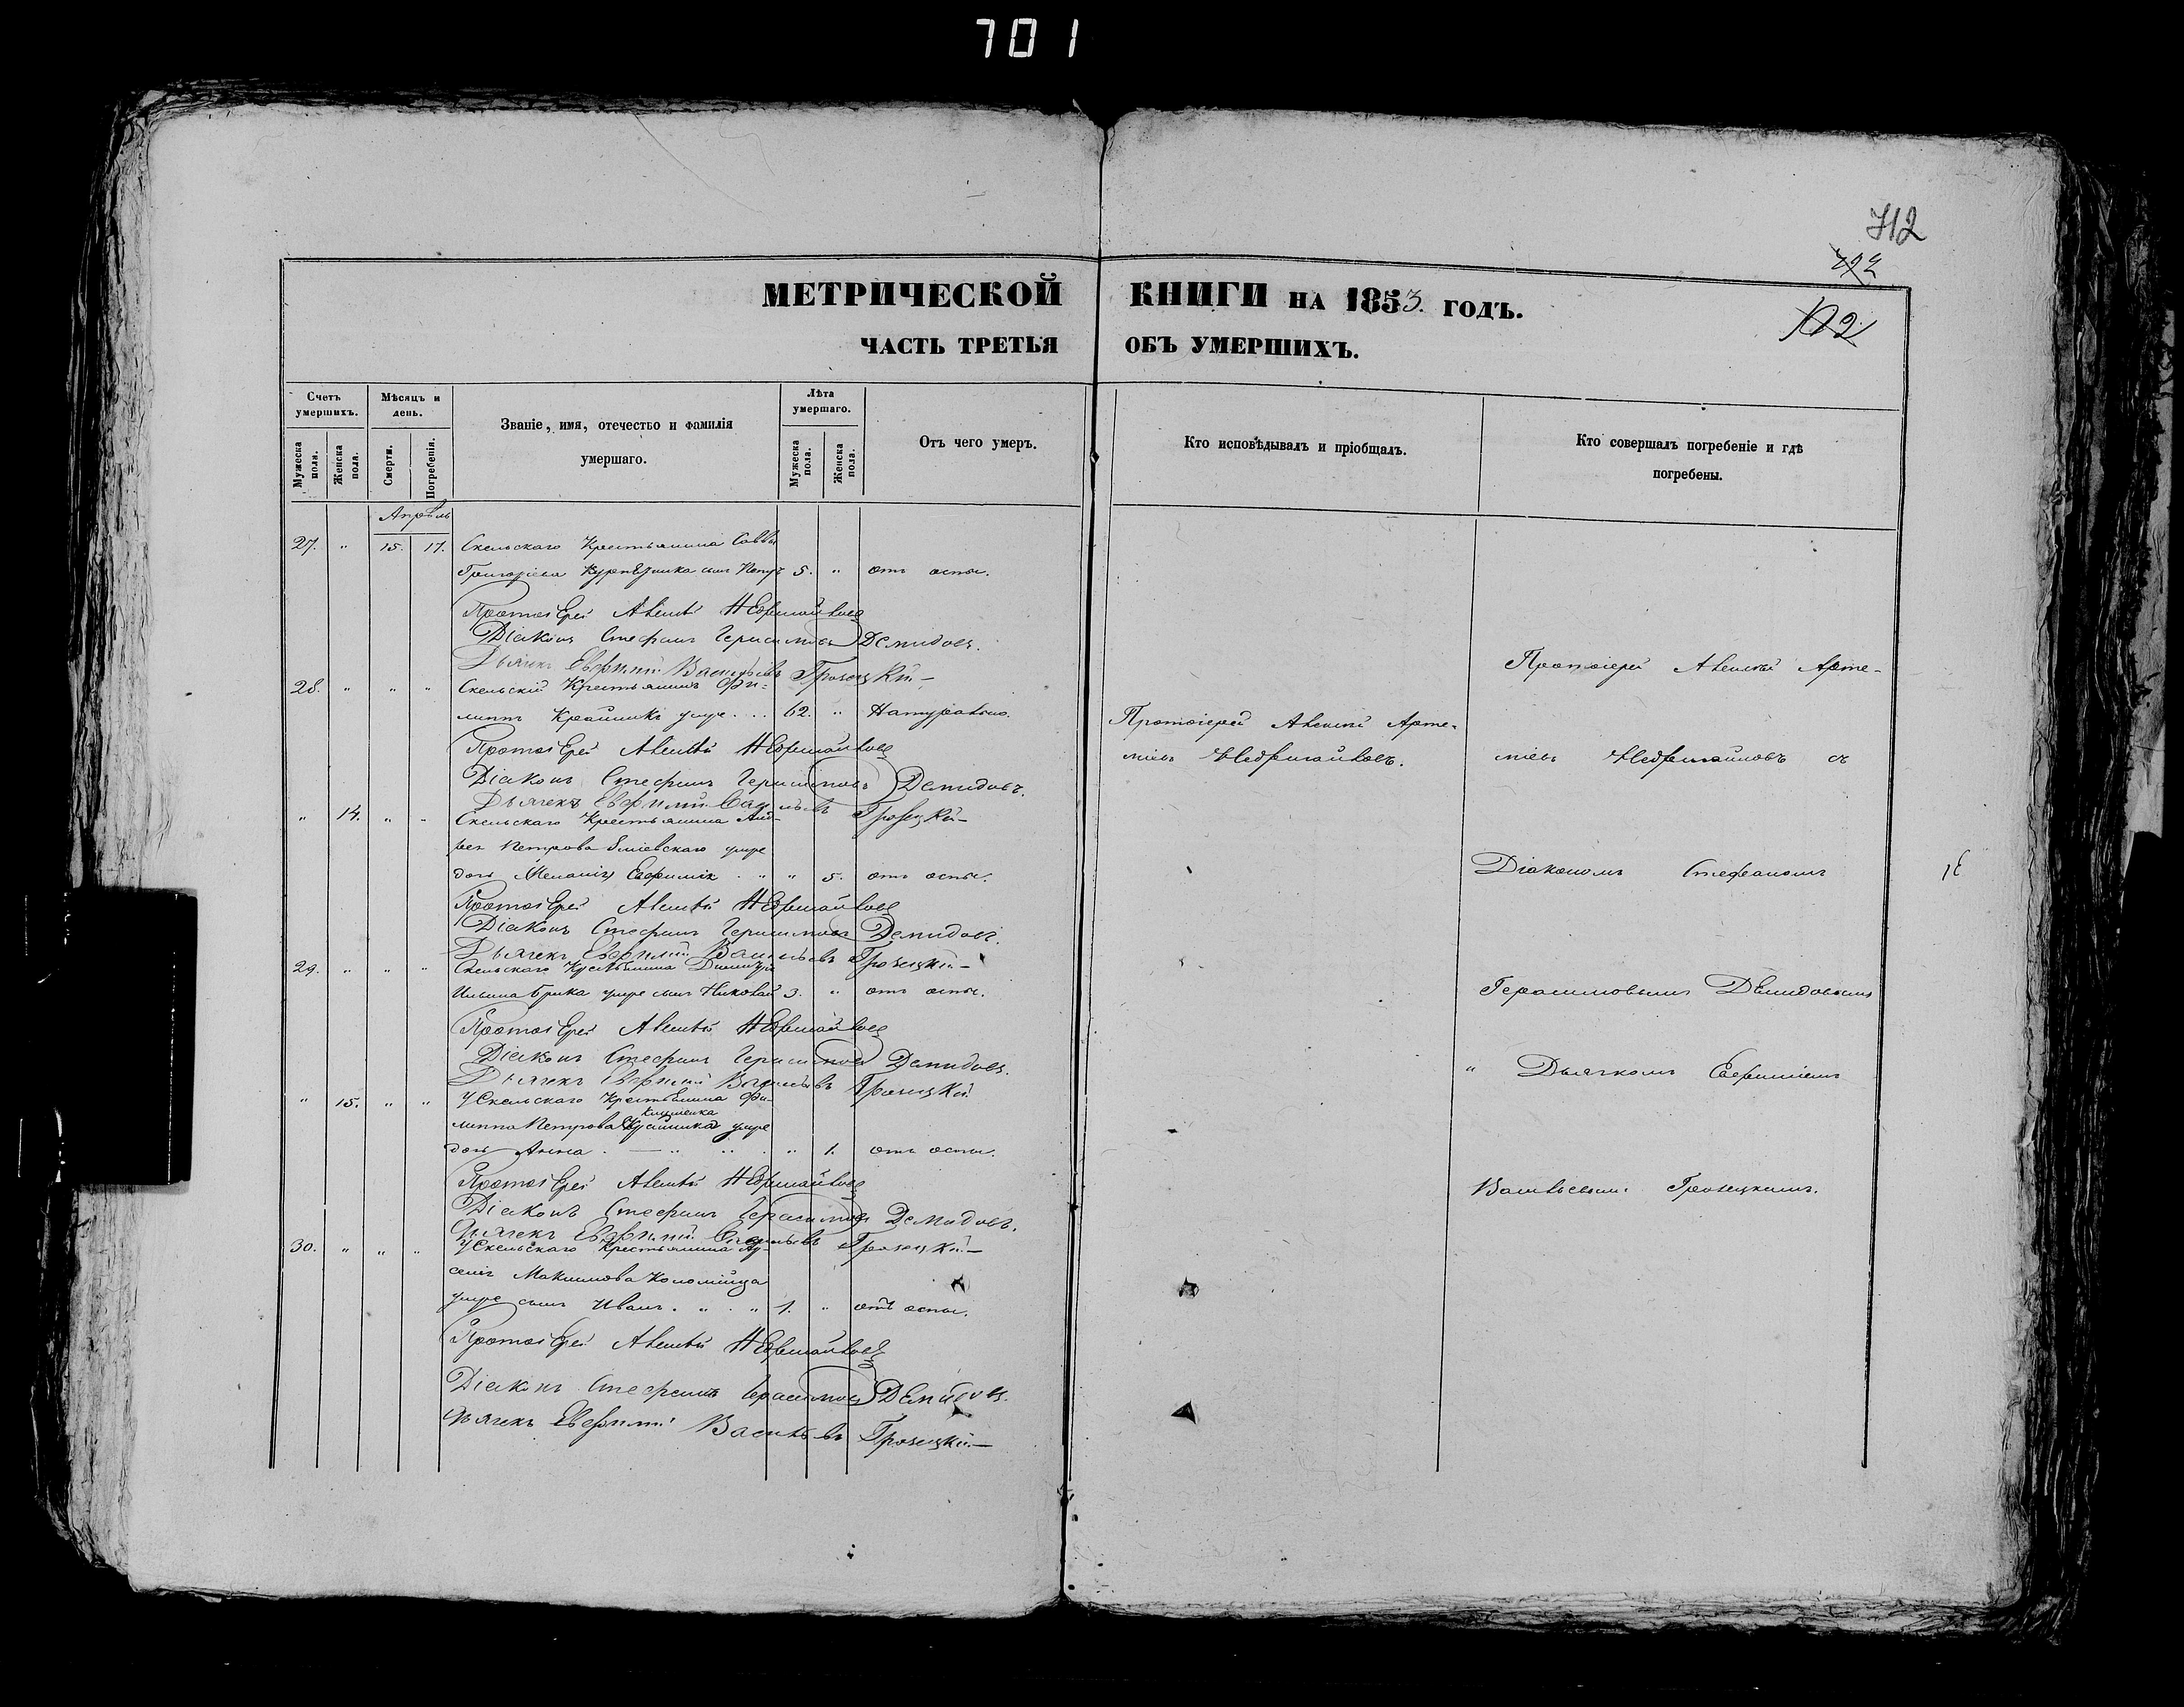 701
712
МЕТРИЧЕСКОЙ КНИГИ НА 1853. ГОДЪ.
ЧАСТЬ ТРЕТЬЯ ОБЪ УМЕРШИХЪ.
Счетъ умершихъ.
Мужеска пола.
Женска пола.
Мѣсяцъ и день.
Смерти.
Погребенія.
Званіе, имя, отечество и фамилія умершаго.
Лѣта умершаго.
Мужеска пола.
Женска пола.
Отъ чего умеръ.
Кто исповѣдывалъ и пріобщалъ.
Кто совершалъ погребеніе и гдѣ погребены.
Апрѣль
27. " 15. 17. Скельскаго Крестьянина Саввы
Григоріева сынъ Петръ 5. " отъ оспы.
Протоіерей Алексѣй
Діаконъ Стефанъ Герасимовъ Демидовъ.
Дьячекъ Евфимій Васильевъ Грозецкій
28. " " " Скельскій Крестьянинъ Фи-
липпъ Крайникъ умре . . 62. " Натурально.
Протоіерей Алексѣй
Діаконъ Стефанъ Герасимовъ Демидовъ.
Дьячекъ Евфимій Васильевъ Грозецкій
" 14. " " Скельскаго Крестьянина Анд-
рея Петрова Зміевскаго умре
дочь Меланія " " 5. отъ оспы.
Протоіерей Алексѣй
Діаконъ Стефанъ Герасимовъ Демидовъ.
Дьячекъ Евфимій Васильевъ Грозецкій
29. " " " Скельскаго Крестьянина Димитрія
Ильина Брика умре сынъ Николай 3. " отъ оспы.
Протоіерей Алексѣй
Діаконъ Стефанъ Герасимовъ Демидовъ.
Дьячекъ Евфимій Васильевъ Грозецкій
" 15. " " УСкельскаго Крестьянина Фи-
липпа Петрова умре
дочь Анна . " 1. отъ оспы.
Протоіерей Алексѣй
Діаконъ Стефанъ Герасимовъ Демидовъ.
Дьячекъ Евфимій Васильевъ Грозецкій
30. " " " УСкельскаго Крестьянина
Максимова Коломійца
умре сынъ Иванъ . " . " 1. " отъ оспы.
Протоіерей Алексѣй
Діаконъ Стефанъ Герасимовъ Демидовъ.
Дьячекъ Евфимій Васильевъ Грозецкій
Протоіерей Алексѣй Арте-
міевъ
Протоіерей Алексѣй Арте-
міевъ съ
Діакономъ Стефаномъ
Герасимовымъ Демидовымъ
" Дьячкомъ Евфиміемъ
Васильевымъ Грозецкимъ.